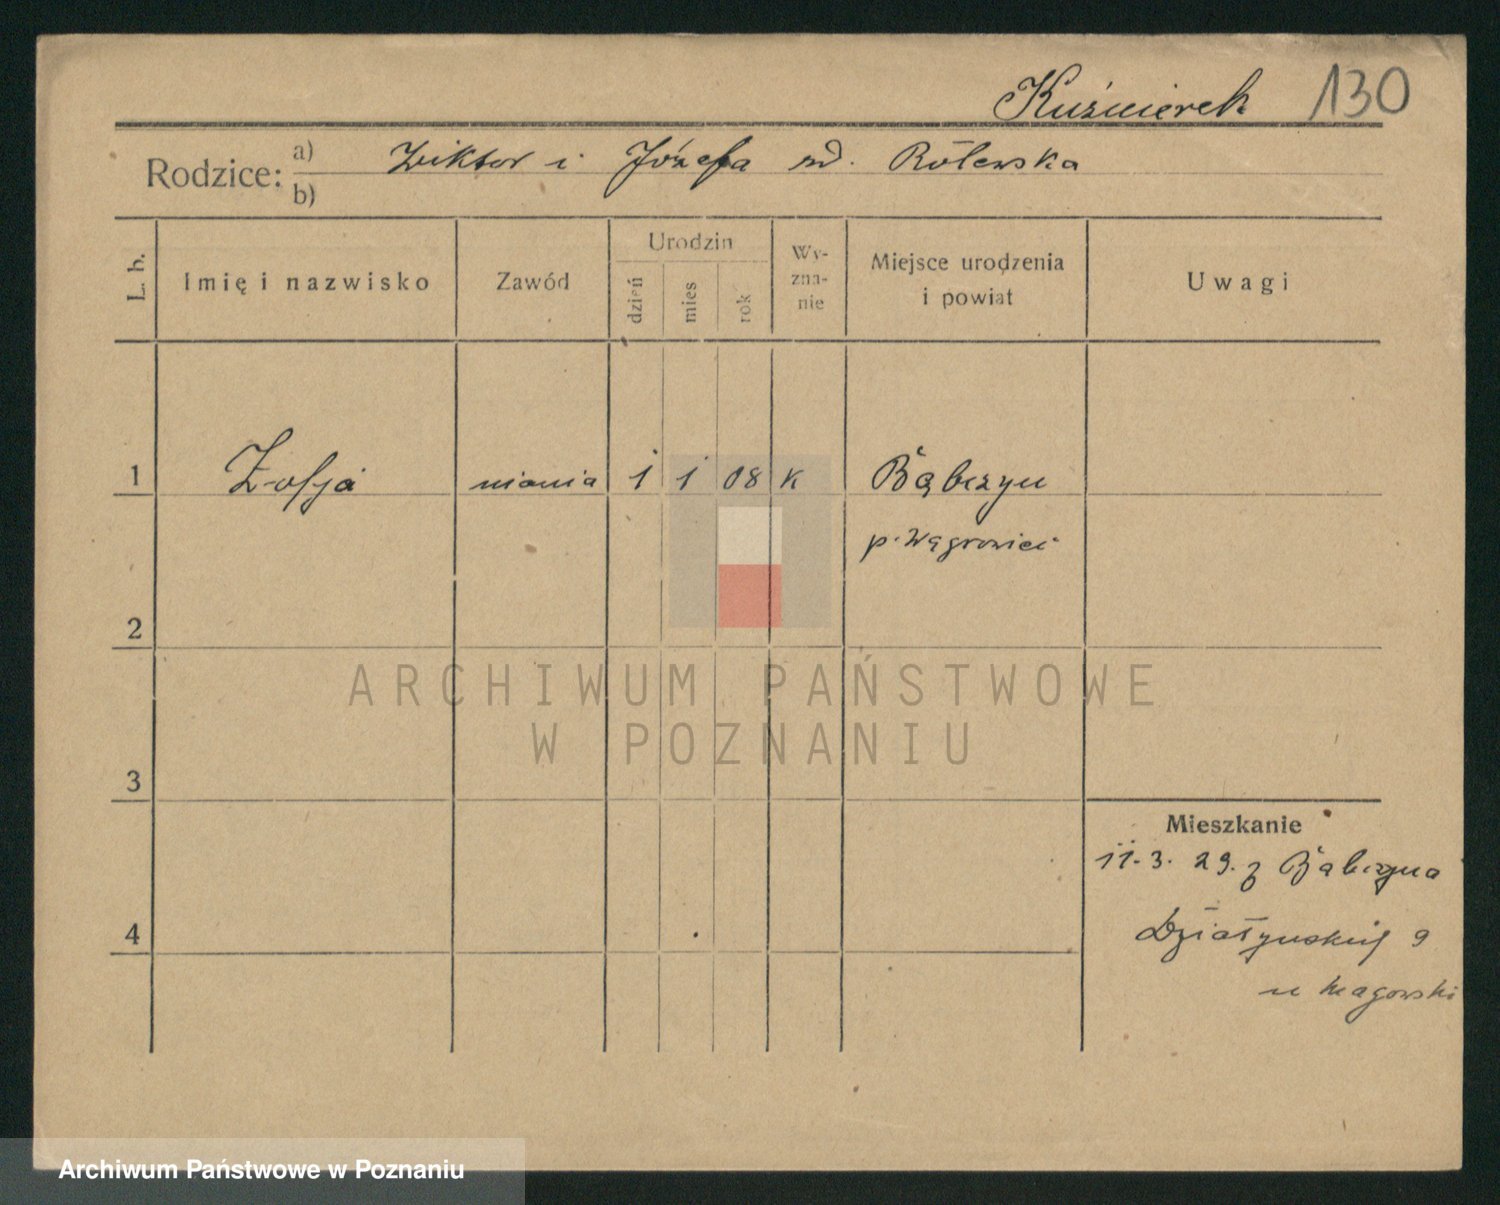 Kuśmierek 130
Rodzice: a) Wiktor i Józefa
b)
L. b.
Imię i nazwisko
Zawód
Urodzin
dzień
mies
rok
Wy-
zna-
nie
Miejsce urodzenia
i powiat
Uwagi
1 Zofja niania 1 1 08 k Bąbczyn
p. Wągrowiec
2
3
4
Mieszkanie
11.3.29. z Bąbczyna
Działyńskich 9
ARCHIWUM PAŃSTWOWE
W POZNANIU
Archiwum Państwowe w Poznaniu